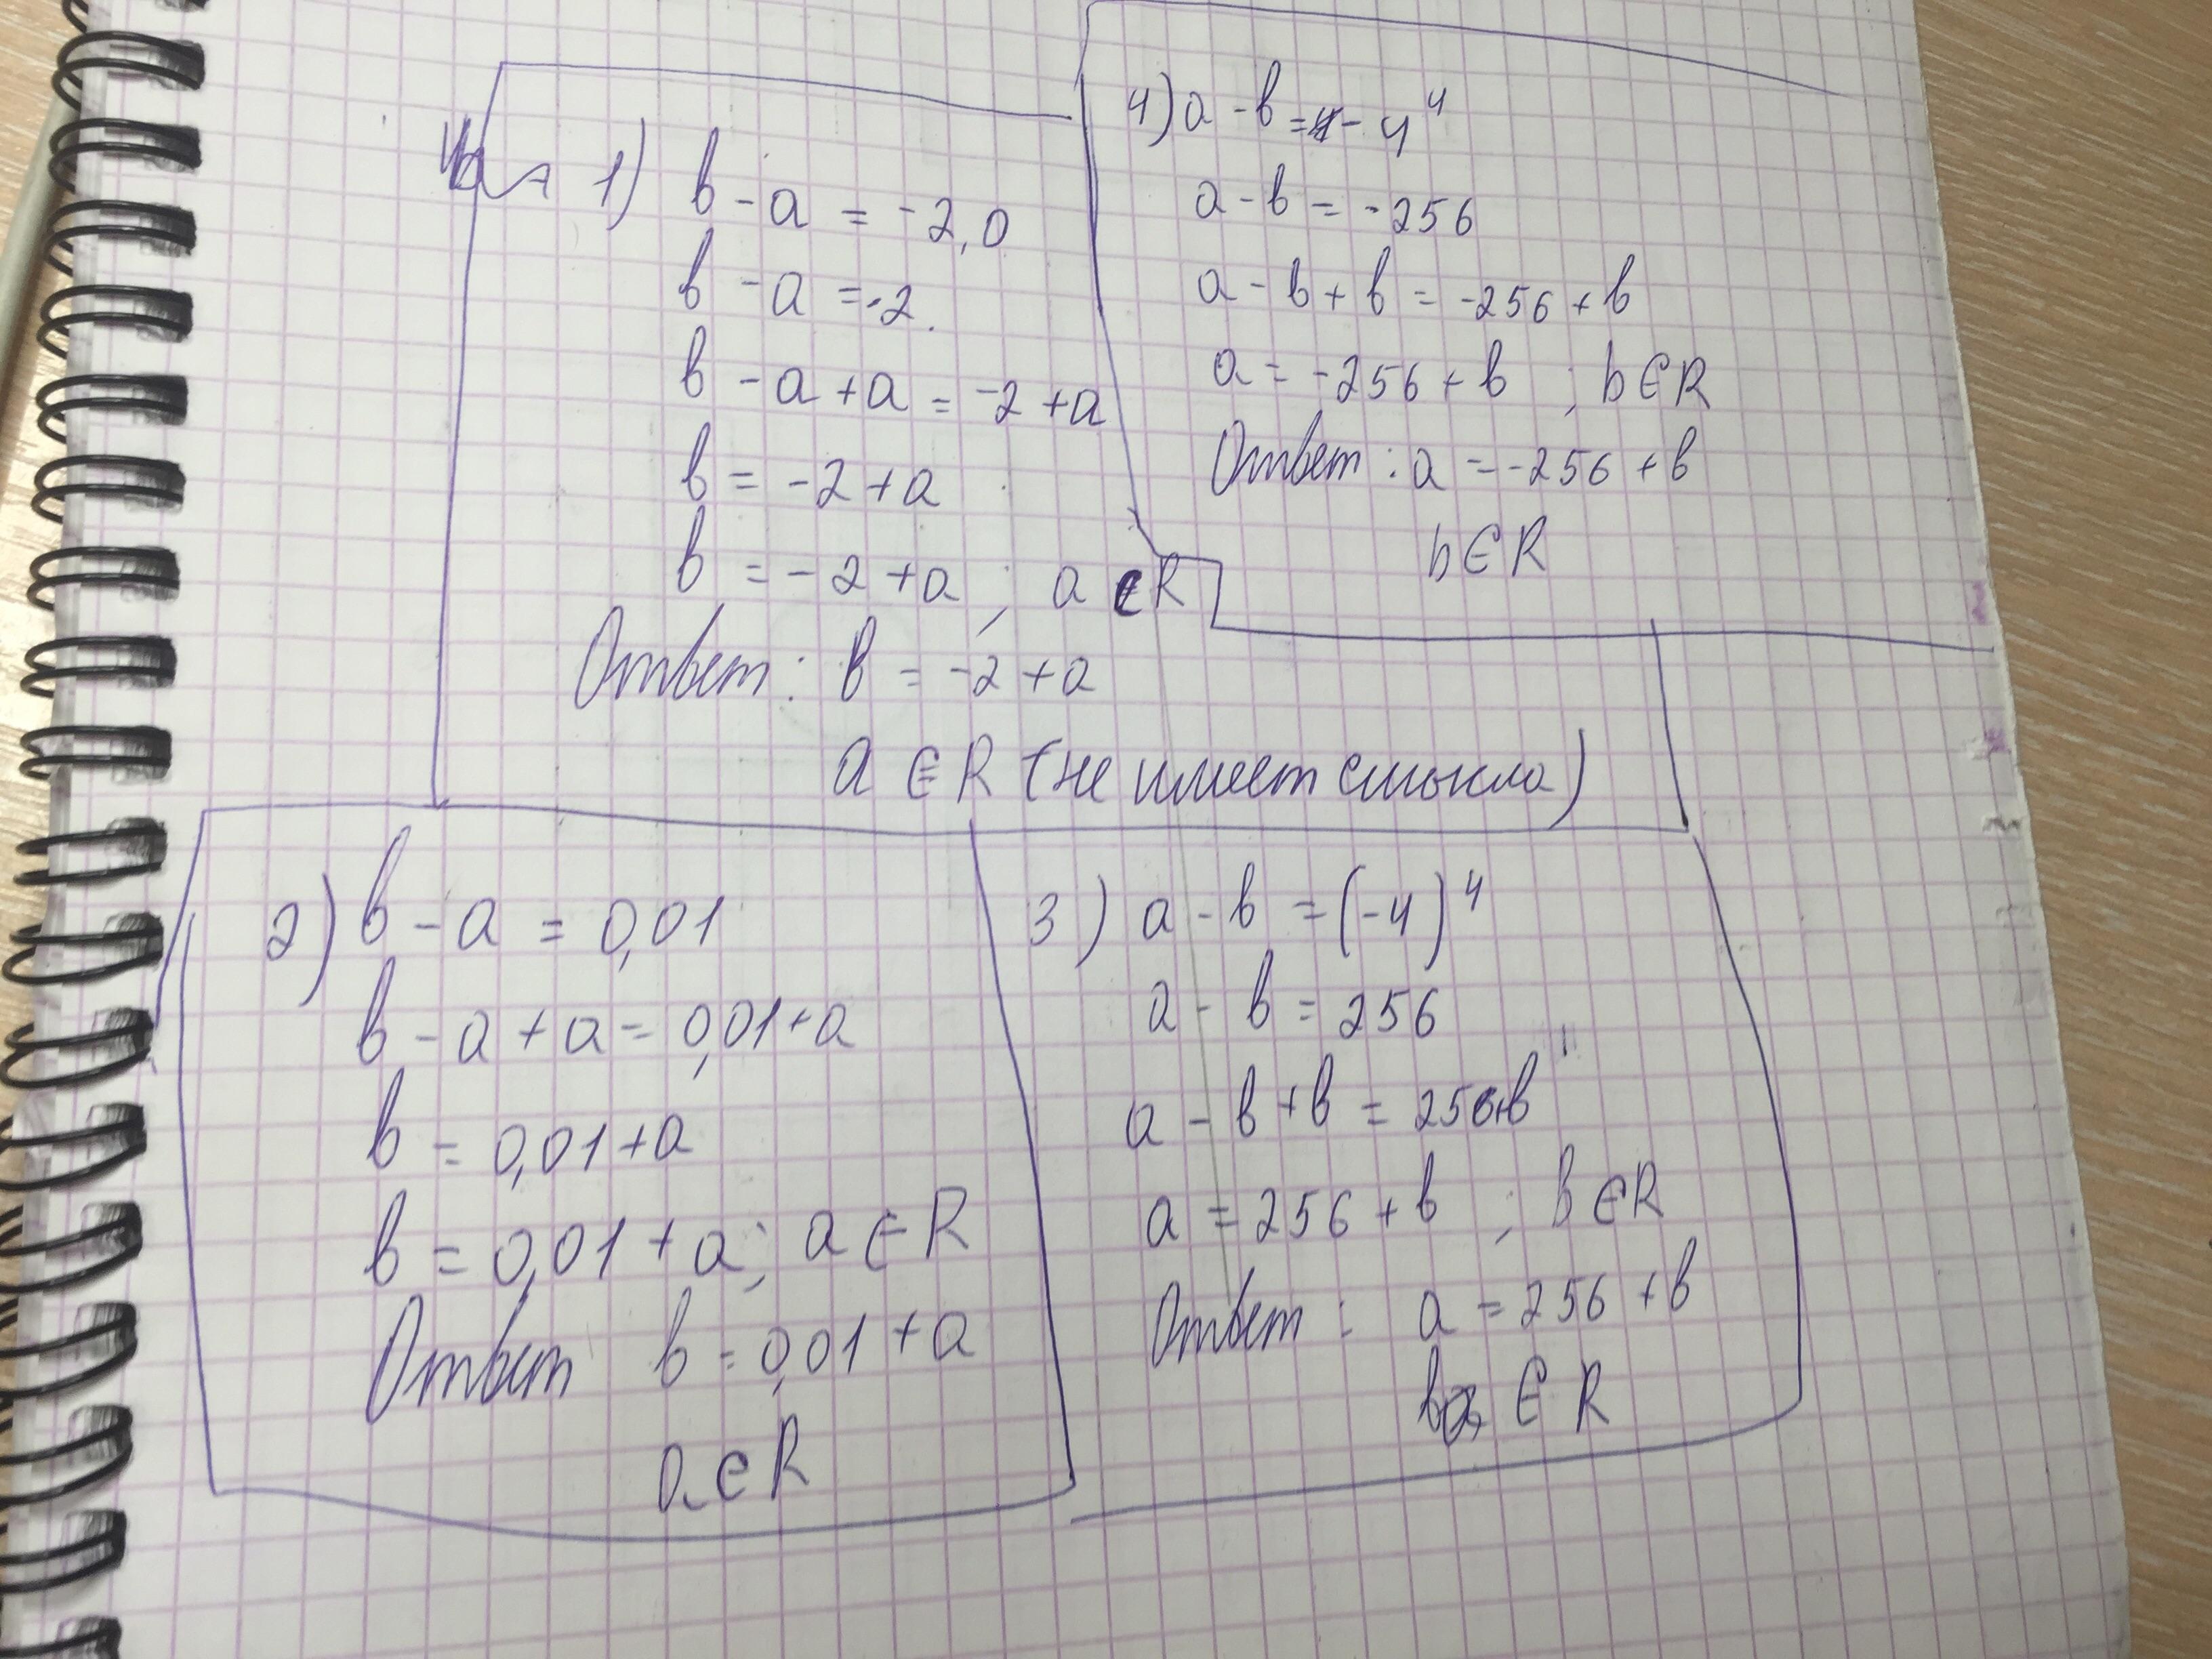 1) в - a = -2,0
в - a = -2.
в - a + a = -2 + a
в = -2 + a
в = -2 + a ; a ∈ R
Ответ: в = -2 + a
a ∈ R (не имеет смысла)
4) a - в = - 4⁴
a - в = -256
a - в + в = -256 + в
a = -256 + в ; b ∈ R
Ответ: a = -256 + в
b ∈ R
2) в - a = 0,01
в - a + a = 0,01 + a
в = 0,01 + a
в = 0,01 + a; a ∈ R
Ответ в = 0,01 + a
a ∈ R
3) a - в = (-4)⁴
a - в = 256
a - в + в = 256+в
a = 256 + в ; в ∈ R
Ответ: a = 256 + в
в ∈ R